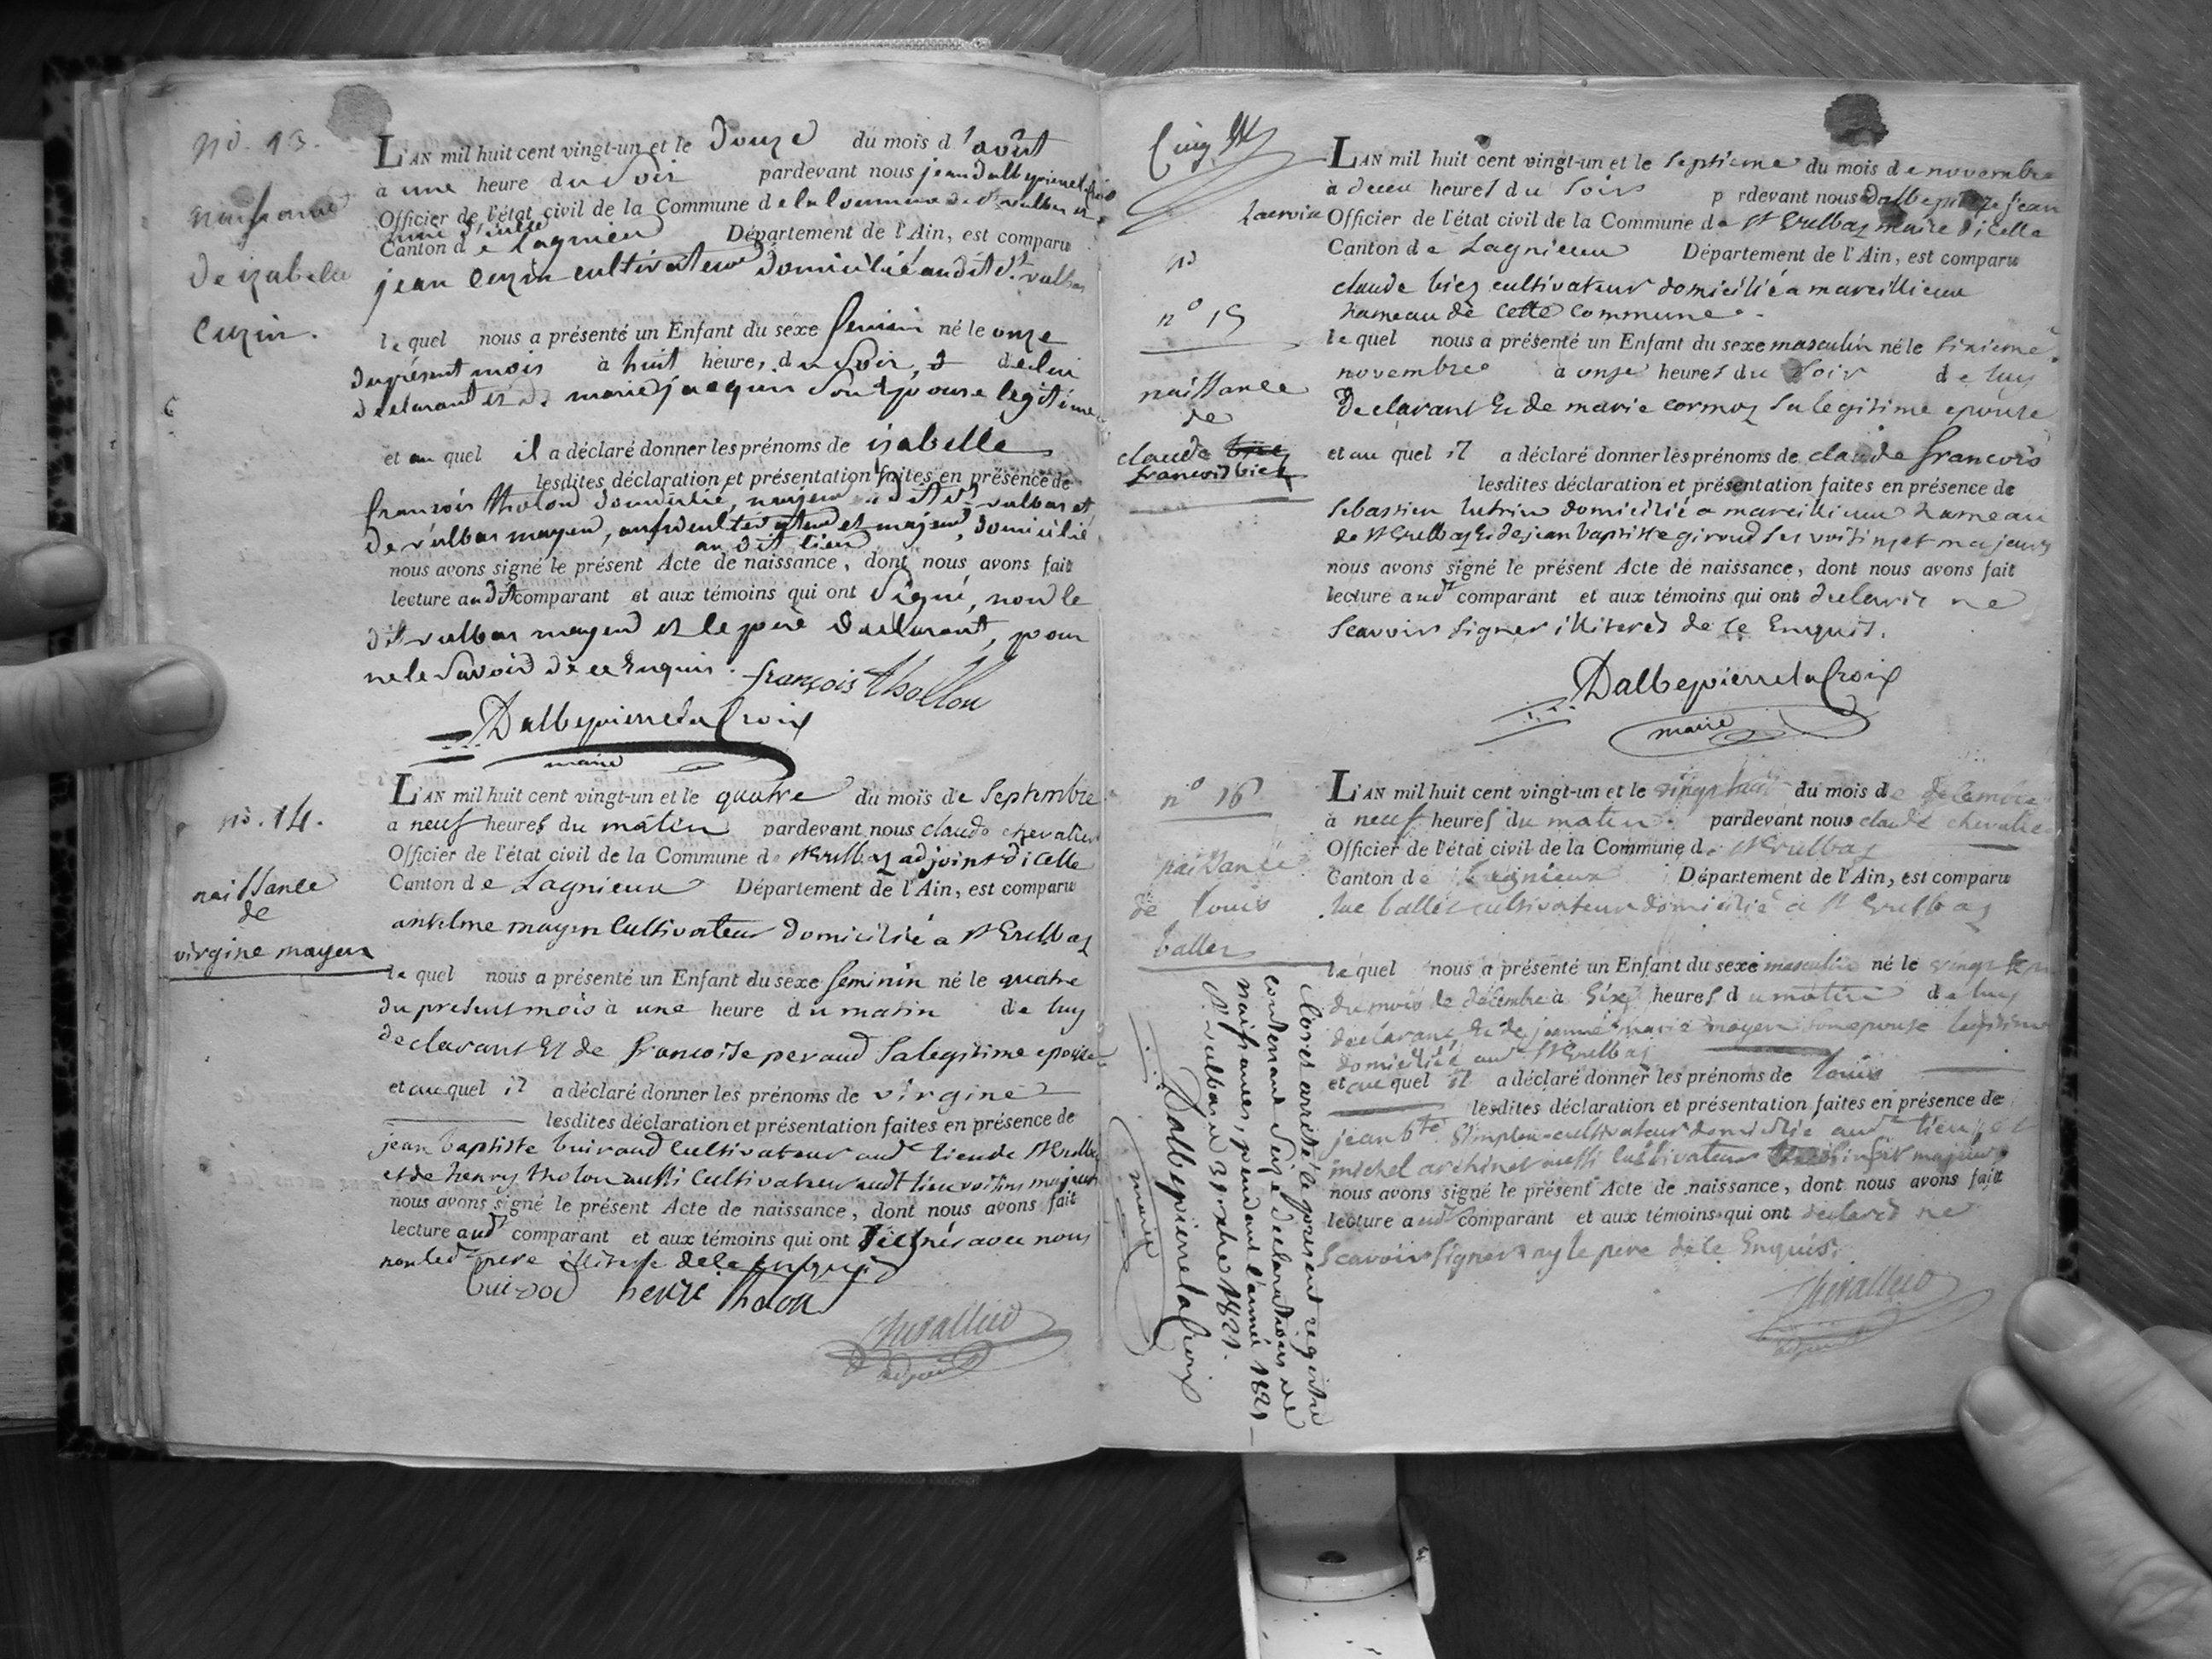 no. 13.
naissance
de izabelle
cuzin.
L'AN mil huit cent vingt-un et le douze du mois d'août
à une heure du soir pardevant nous jean dalbepierrelacroix
Officier de l'état civil de la Commune de la Commune de St vulbas et
maire d'icelle
Canton de lagnieu Département de l'Ain, est comparu
jean cuzin cultivateur domicilié audit St vulbas
le quel nous a présenté un Enfant du sexe feminin né le onze
du présent mois à huit heures du soir, de lui
déclarant et de marie jacquin son épouse legitime
et au quel il a déclaré donner les prénoms de izabelle
lesdites déclaration et présentation faites en présence de
françois tholon domicilié, majeur audit St vulbas et
de vulbas mayen, aussi cultivateur et majeur, domicilié
au dit lieu
nous avons signé le présent Acte de naissance, dont nous avons fait
lecture audit comparant et aux témoins qui ont signé, non le
dit vulbas mayen et le père déclarant, pour
ne le savoir de ce enquis. françois thollon
DalbepierrelaCroix
maire
no. 14.
naissance
de
virgine mayen
L'AN mil huit cent vingt-un et le quatre du mois de Septembre
a neuf heures du matin pardevant nous claude chevalier
Officier de l'état civil de la Commune de St Vulbaz adjoint dicelle
Canton de Lagnieux Département de l'Ain, est comparu
antelme mayen Cultivateur domicilié a St Vulbaz
le quel nous a présenté un Enfant du sexe feminin né le quatre
du present mois à une heure du matin de luy
declarant Et de francoise peraud sa legitime epouse
et au quel il a déclaré donner les prénoms de virgine
lesdites déclaration et présentation faites en présence de
jean baptiste buiraud Cultivateur audt lieu de St Vulbaz
et de henry tholon aussi Cultivateur audt lieu voisins majeurs
nous avons signé le présent Acte de naissance, dont nous avons fait
lecture audt comparant et aux témoins qui ont signés avec nous
non ledt pere illiteré de ce enquis
henri tholon
Chevallier
adjoint
Lacroix
no
n° 15
naissance
de
claude
francois biez
L'AN mil huit cent vingt-un et le septieme du mois de novembre
à deux heures du soir pardevant nous Dalbepierre jean
Officier de l'état civil de la Commune de St Vulbaz maire dicelle
Canton de Lagnieux Département de l'Ain, est comparu
claude biez cultivateur domicilié a marcillieux
hameau de cette commune.
le quel nous a présenté un Enfant du sexe masculin né le sixieme
novembre a onze heures du soir de luy
declarant Et de marie cormoz sa legitime epouse
et au quel il a déclaré donner les prénoms de claude francois
lesdites déclaration et présentation faites en présence de
sebastien lutrin domicilié a marcillieux hameau
de St Vulbaz Et de jean baptiste giroud ses voisins et majeurs
nous avons signé le présent Acte de naissance, dont nous avons fait
lecture audt comparant et aux témoins qui ont declaré ne
scavoir signer illiterés de ce Enquis.
DalbepierrelaCroix
maire
n° 16
naissance
de louis
ballet
L'AN mil huit cent vingt-un et le vingt huit du mois de decembre
à neuf heures du matin pardevant nous claude chevalier
Officier de l'état civil de la Commune de St Vulbaz
Canton de Lagnieux Département de l'Ain, est comparu
luc ballet cultivateur domicilié a St Vulbaz
le quel nous a présenté un Enfant du sexe masculin né le vingt sept
du mois de décembre à six heures du matin de luy
declarant Et de jeanne marie mayen son epouse legitime
domicilié audt St Vulbaz
et au quel il a déclaré donner les prénoms de louis
lesdites déclaration et présentation faites en présence de
jean bte cultivateur domicilié audt lieu, et
michel archinet aussi Cultivateur majeurs
nous avons signé le présent Acte de naissance, dont nous avons fait
lecture audt comparant et aux témoins qui ont declaré ne
scavoir signer ny le pere de ce Enquis.
Chevallier
adjoint
Clos et arrêté le présent registre
contenant seize déclarations de
naissances, pendant l'année 1821
St vulbas le 31 xbre 1821.
DalbepierrelaCroix
maire